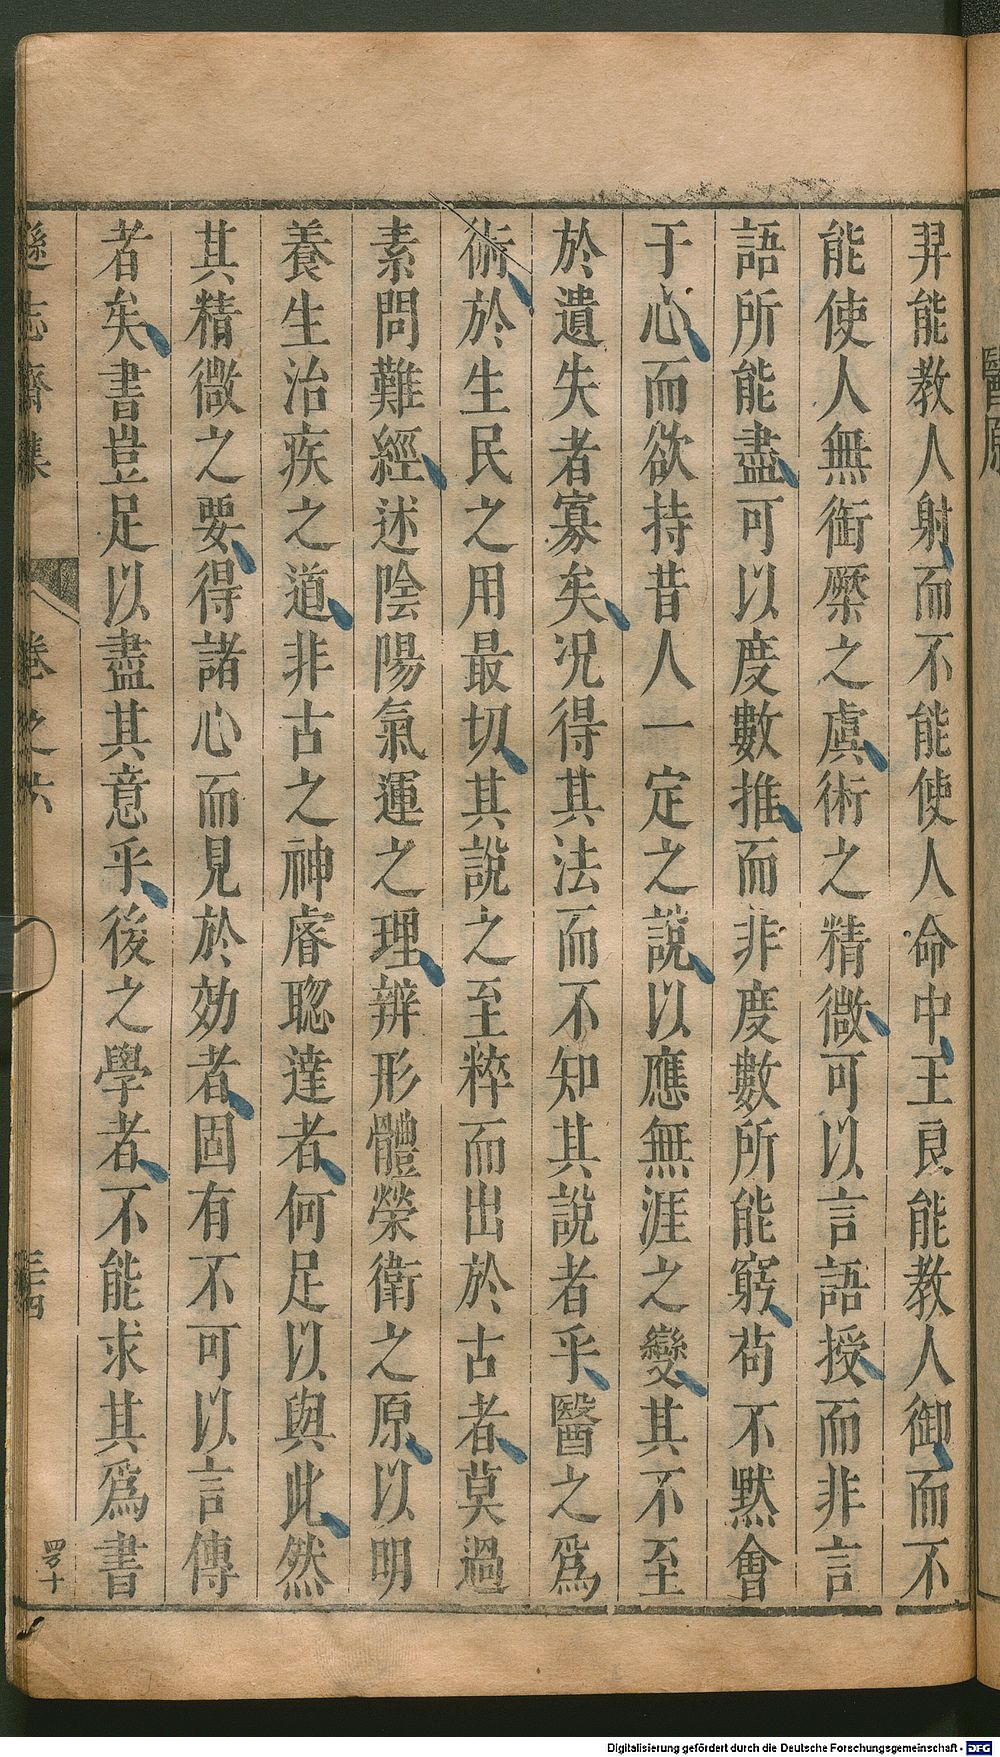 羿能教人射而不能使人命中王良能教人御而不
能使人無銜橜之虞術之精微可以言語授而非言
語所能盡可以度數推而非度數所能窮苟不默會
于心而欲持昔人一定之說以應無涯之變其不至
於遺失者寡矣况得其法而不知其說者乎醫之爲
術於生民之用最切其說之至粹而出於古者莫過
素問難經述陰陽氣運之理辨形體榮衛之原以明
養生治疾之道非古之神睿聦達者何足以與此然
其精微之要得諸心而見於効者固有不可以言傳
者矣書豈足以盡其意乎後之學者不能求其爲書
遜志齋集
卷之六
三四
醫原
Digitalisierung gefördert durch die Deutsche Forschungsgemeinschaft - DFG